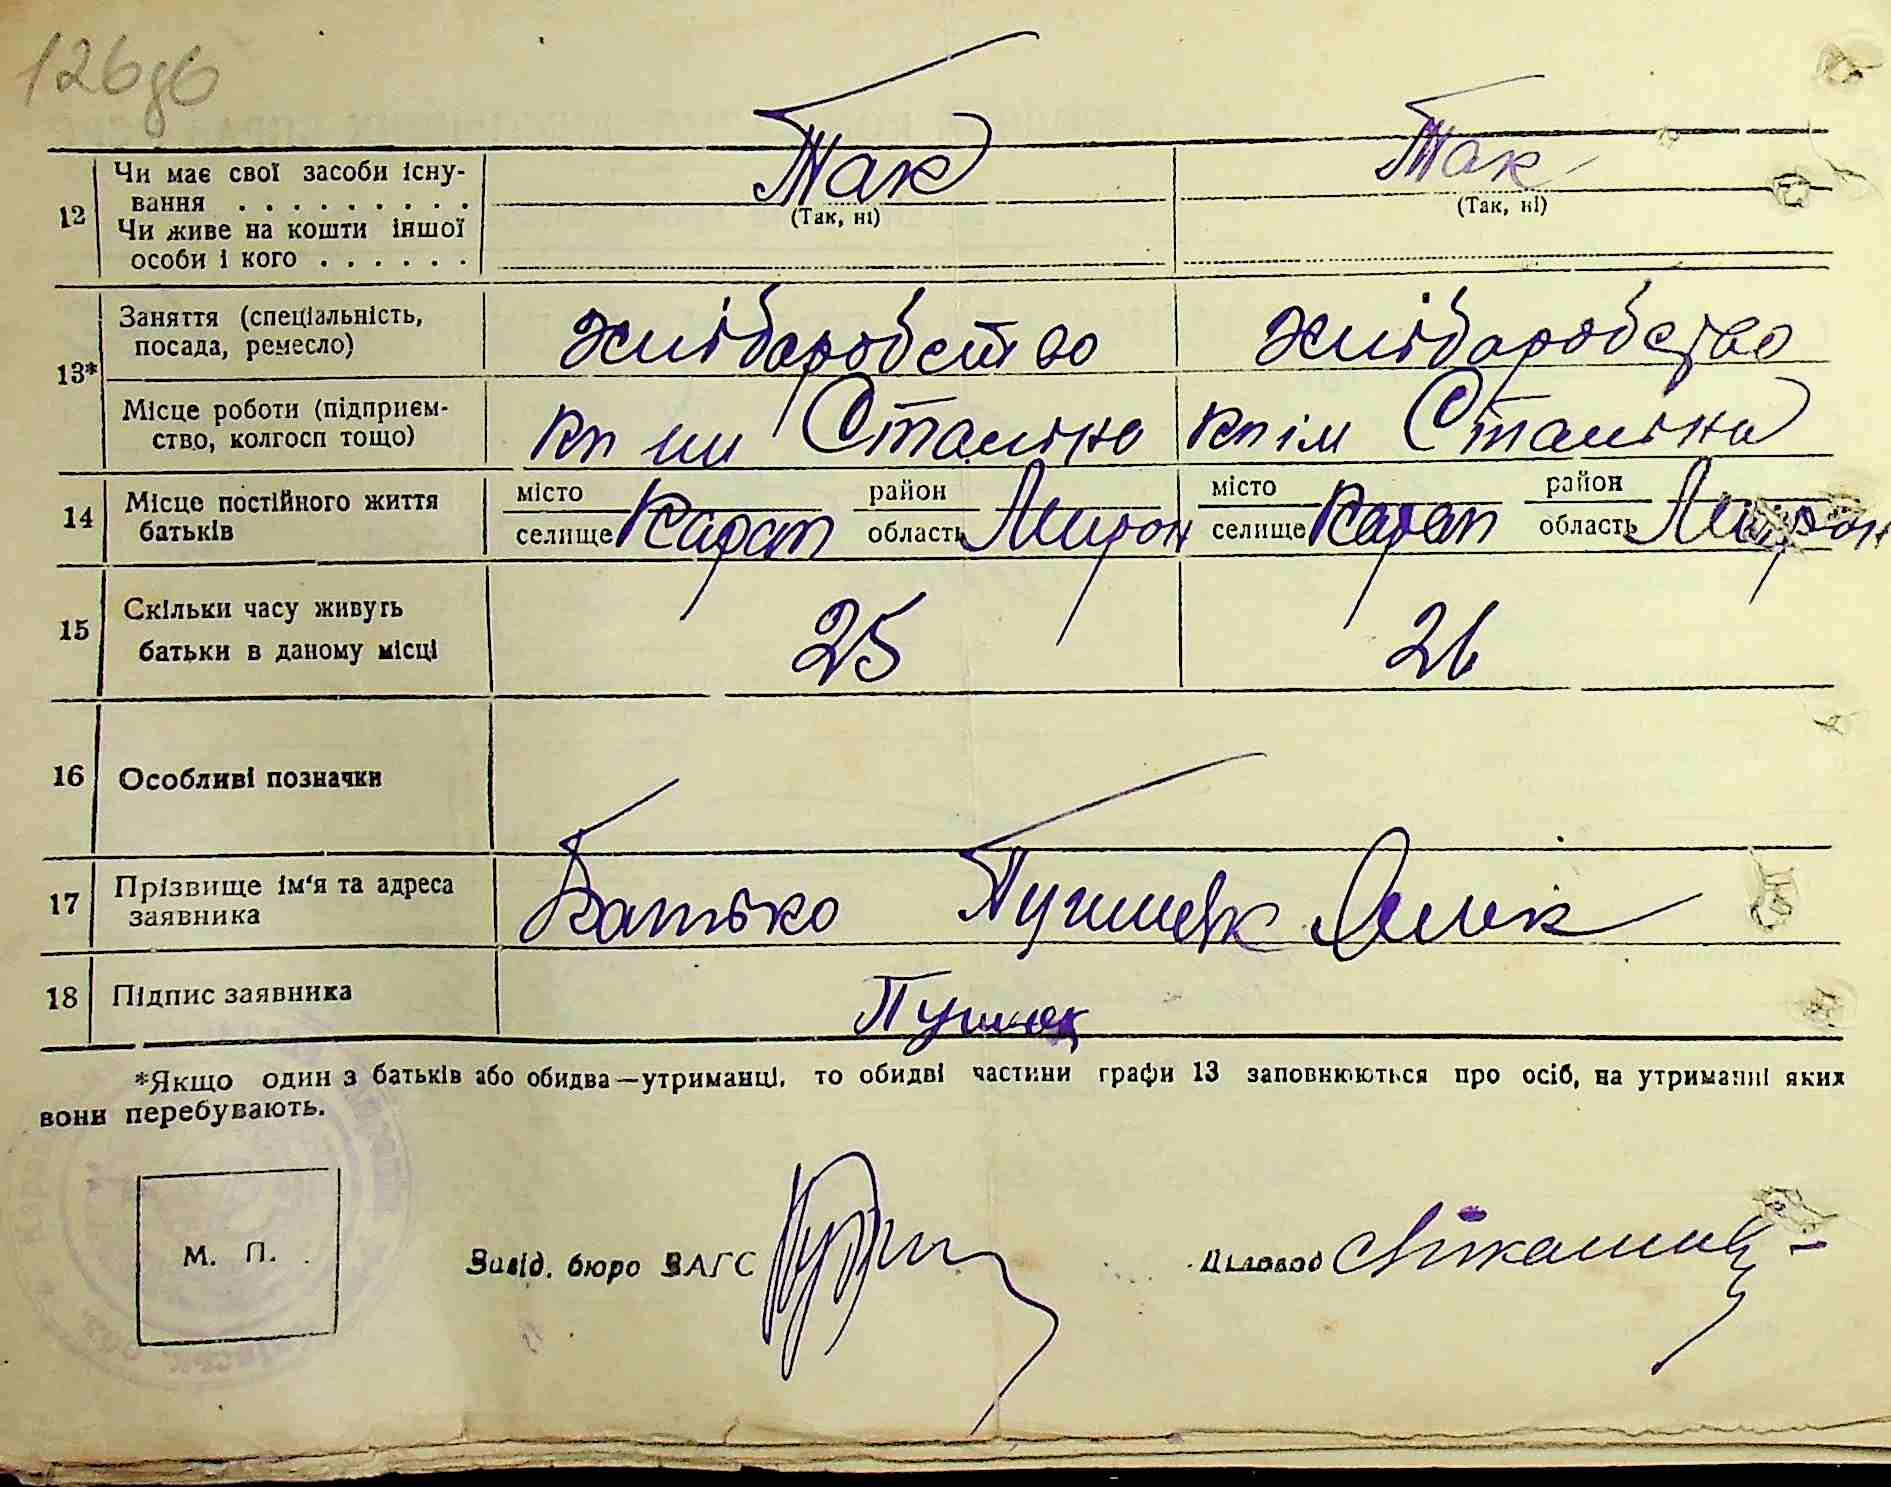 126
12 Чи має свої засоби існу- Так Так
вання . . . . . . . . . (Так, ні) (Так, ні)
Чи живе на кошти іншої
особи і кого . . . . . .
13* Заняття (спеціальність, хліборобство хліборобство
посада, ремесло)
Місце роботи (підприєм- кп ім Сталіна кп ім Сталіна
ство, колгосп тощо)
14 Місце постійного життя місто район місто район
батьків селище Карап область Мирон селище Карап область Мирон
15 Скільки часу живуть 25 26
батьки в даному місці
16 Особливі позначки
17 Прізвище ім'я та адреса Батько
заявника
18 Підпис заявника
*Якщо один з батьків або обидва—утриманці, то обидві частини графи 13 заповнюються про осіб, на утриманні яких
вони перебувають.
М. П. Завід. бюро ЗАГС Діловод